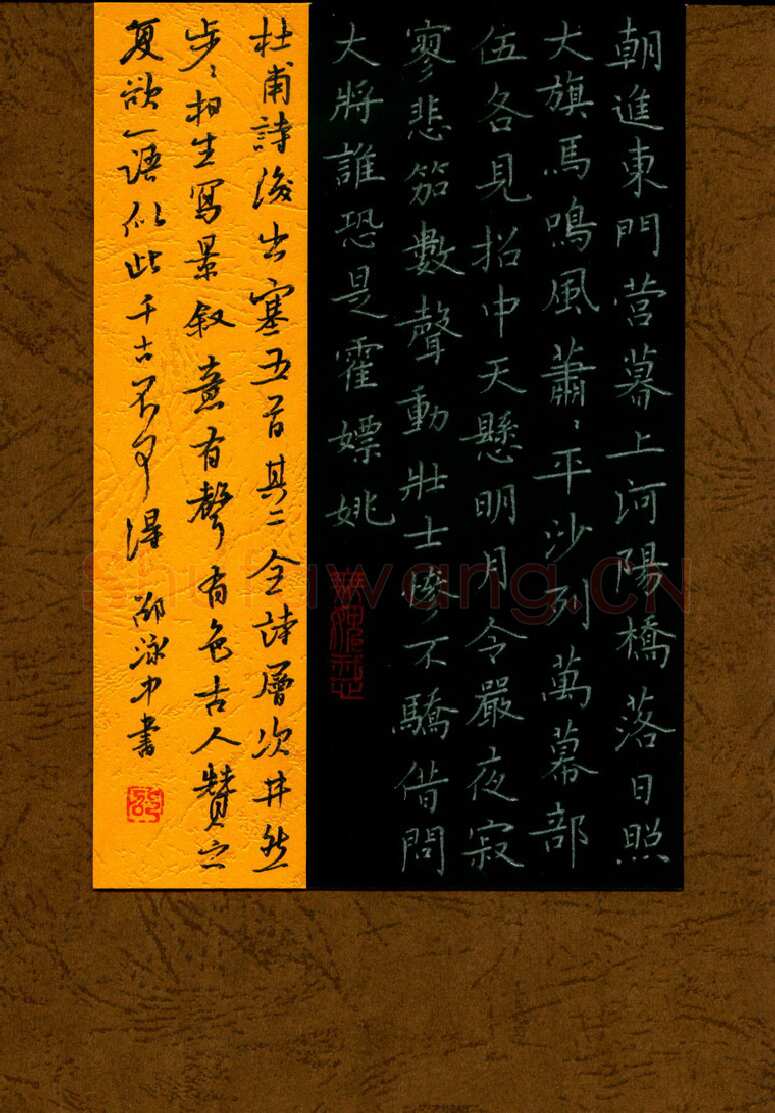 朝進東門營暮上河陽橋落日照
大旗馬鳴風蕭〻平沙列萬幕部
伍各見招中天懸明月令嚴夜寂
寥悲笳數聲動壯士慘不驕借問
大將誰恐是霍嫖姚
杜甫詩後出塞五首其二全詩層次井然
步〻相生寫景叙意有聲有色古人贊之
复欲一語似此千古不可得 邵泳中書
Shufawang.CN